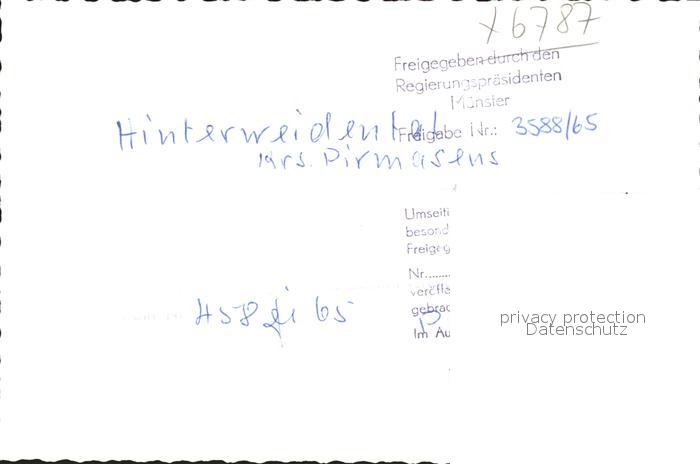 x 6787
Freigegeben durch den
Regierungspräsidenten
Münster
Freigabe Nr.: 3588/65
Hinterweidental
Krs. Pirmasens
Umseiti
besond
Freigeg
Nr.......
veröffe
gebrac
Im Au
458 65
privacy protection
Datenschutz